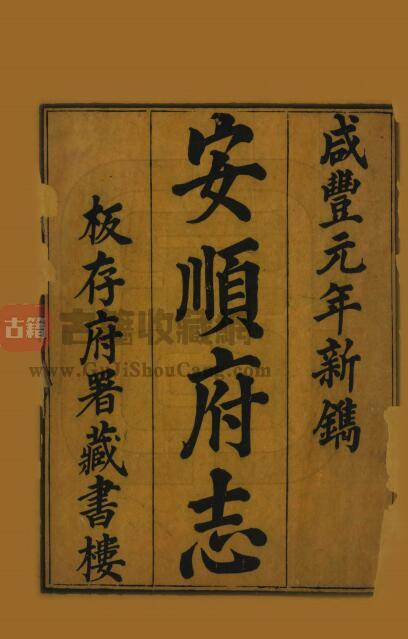 咸豐元年新鐫
安順府志
板存府署藏書樓
古籍
古籍收藏網
www.GuJiShouCang.com